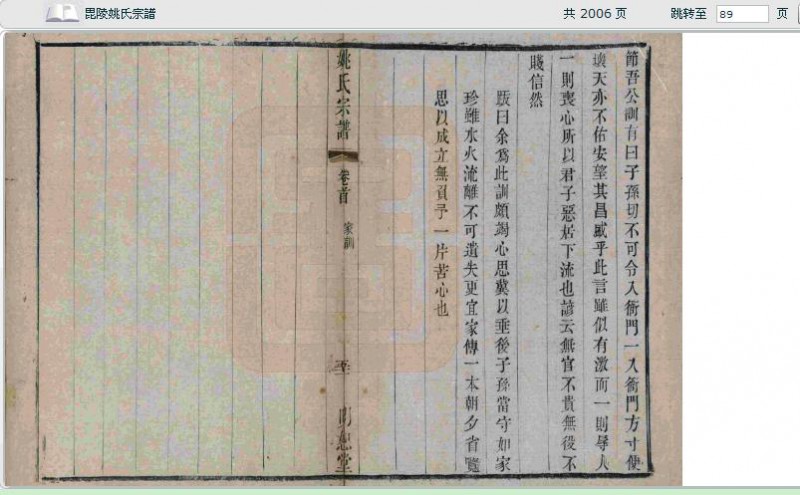 毘陵姚氏宗譜
共 2006 页
跳转至 89 页
節吾公訓有曰子孫切不可令入衙門一入衙門方寸便
壞天亦不佑安望其昌盛乎此言雖似有激而一則辱人
一則喪心所以君子惡居下流也諺云無官不貴無役不
賤信然
跋曰余爲此訓頗竭心思冀以垂後子孫當守如家
珍雖水火流離不可遺失更宜家傳一本朝夕省覽
思以成立無負予一片苦心也
姚氏宗譜
卷首
家訓
堂